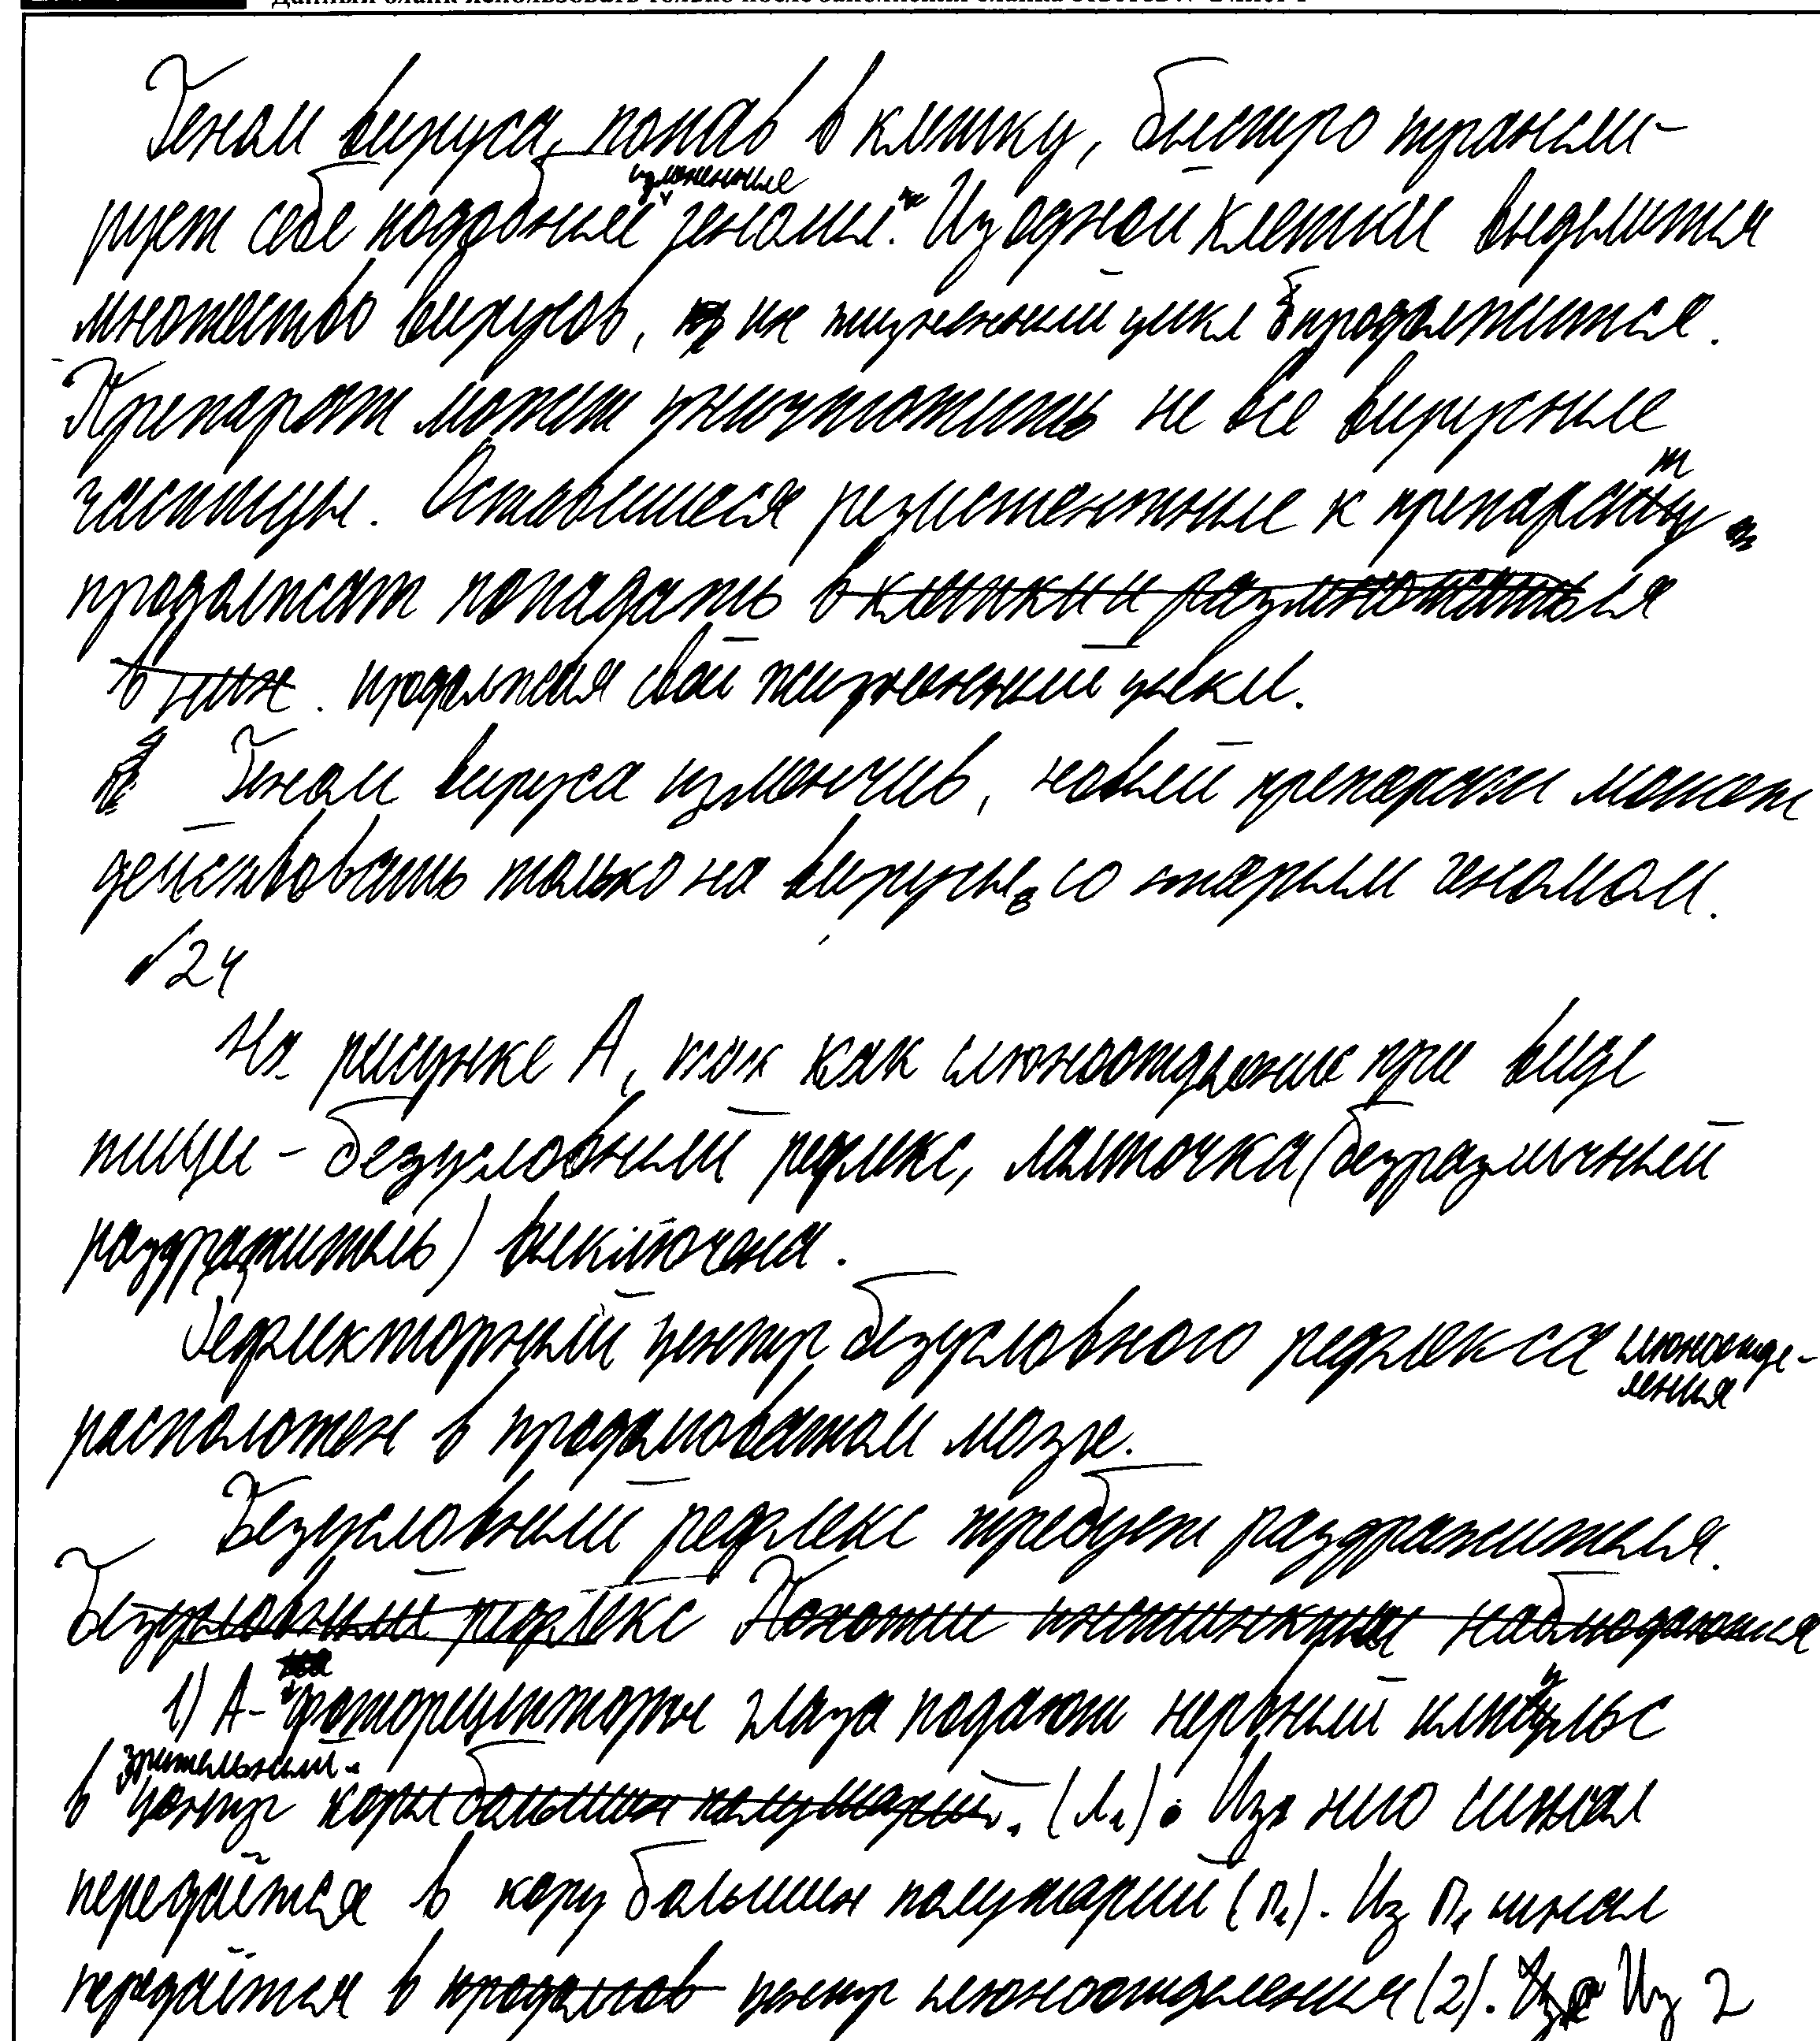 Геном вируса, попав в клетку, быстро трансли-
рует себе подобные измененные геномы. Из одной клетки выделится
множество вирусов, их жизненный цикл продолжится.
Препарат может уничтожить не все вирусные
частицы. Оставшиеся резистентные к препарату
продолжат попадать в клетки и размножаться
в них. продолжая свой жизненный цикл.
Геном вируса изменчив, новый препарат может
действовать только на вирусы со старым геномом.
№24
На рисунке А, так как слюноотделение при виде
пищи - безусловный рефлекс, лампочка (безразличный
раздражитель) выключена.
Рефлекторный центр безусловного рефлекса слюноотде-
ления
расположен в продолговатом мозге.
Безусловный рефлекс требует раздражителя.
Безусловный рефлекс Похожие наблюдаются
1) А- фоторецепторы глаза подают нервный импульс
в зрительный центр коры больших полушарий. (Л1). Из него сигнал
передаётся в кору больших полушарий (П1). Из П1 сигнал
передаётся в продолгов центр слюноотделения (2). Из 2